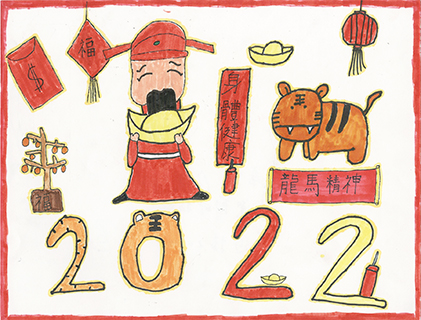 $
福
身體健康
王
龍馬精神
福
王
2022